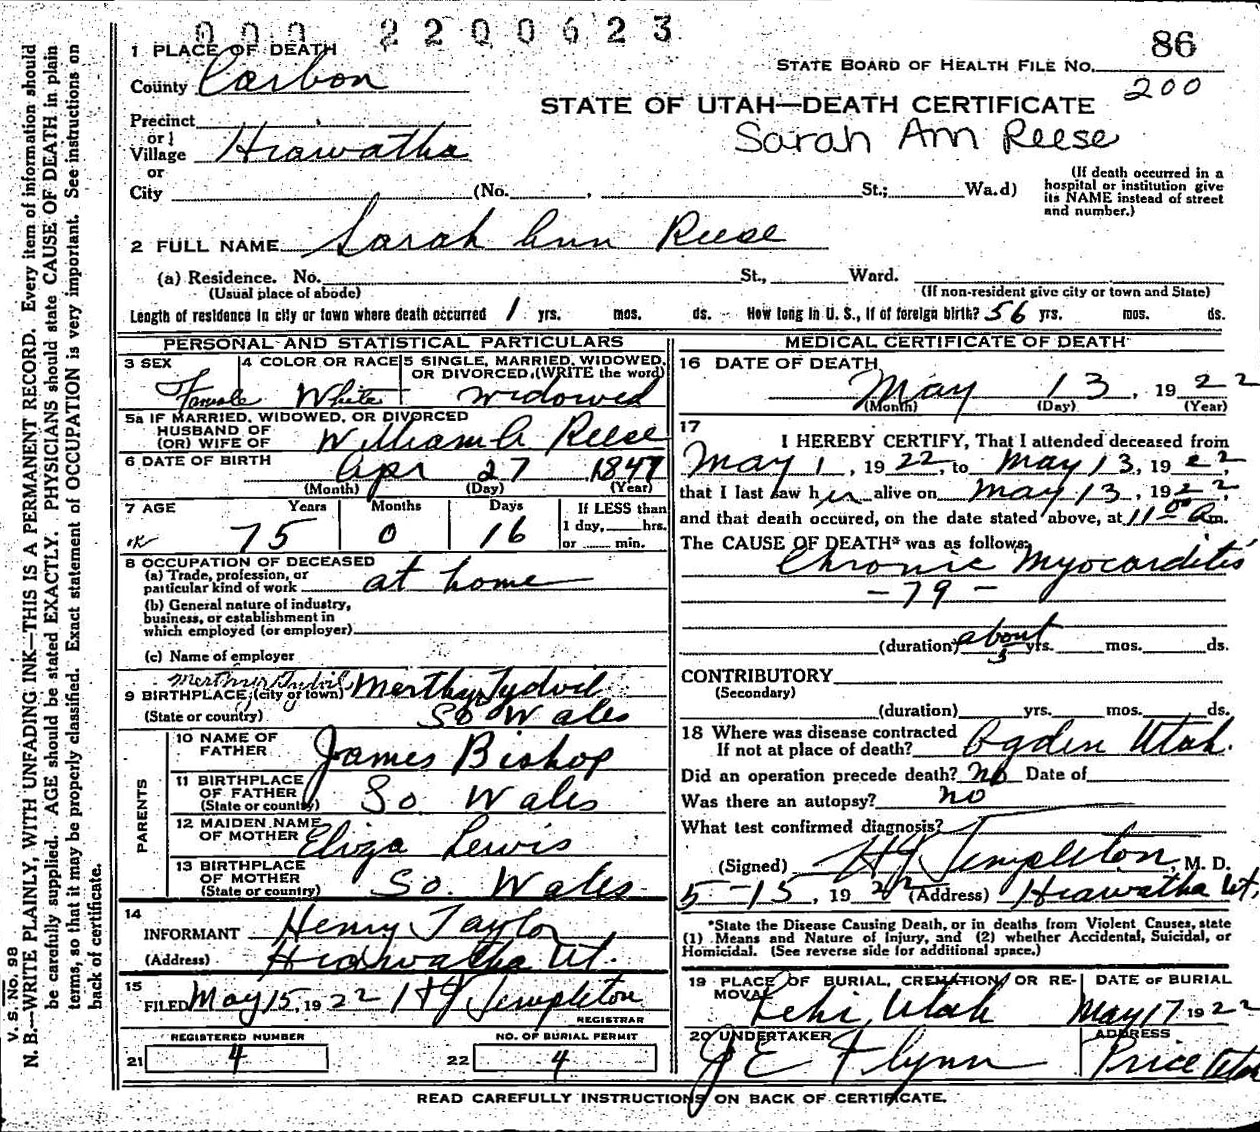 000 2200623
1 PLACE OF DEATH
County Carbon
STATE BOARD OF HEALTH FILE NO. 86
200
STATE OF UTAH—DEATH CERTIFICATE
Sarah Ann Reese
Precinct
or
Village Hiawatha
or
City (No. , St.; Wa.d)
(If death occurred in a hospital or institution give its NAME instead of street and number.)
2 FULL NAME Sarah Ann Reese
(a) Residence. No. St., Ward.
(Usual place of abode) (If non-resident give city or town and State)
Length of residence in city or town where death occurred 1 yrs. mos. ds. How long in U. S., if of foreign birth? 56 yrs. mos. ds.
PERSONAL AND STATISTICAL PARTICULARS
3 SEX
Female
4 COLOR OR RACE
White
5 SINGLE, MARRIED, WIDOWED, OR DIVORCED, (WRITE the word)
widowed
5a IF MARRIED, WIDOWED, OR DIVORCED
HUSBAND OF
(OR) WIFE OF William A Reese
6 DATE OF BIRTH Apr 27 1847
(Month) (Day) (Year)
7 AGE Years Months Days If LESS than
75 0 16 1 day, hrs.
or min.
8 OCCUPATION OF DECEASED
(a) Trade, profession, or
particular kind of work at home
(b) General nature of industry,
business, or establishment in
which employed (or employer)
(c) Name of employer
Merthyr Tydvil
9 BIRTHPLACE, (city or town) Merthyr Tydvil
(State or country) So Wales
PARENTS
10 NAME OF
FATHER James Bishop
11 BIRTHPLACE
OF FATHER
(State or country) So. Wales
12 MAIDEN NAME
OF MOTHER Eliza Lewis
13 BIRTHPLACE
OF MOTHER
(State or country) So. Wales
14
INFORMANT Henry Taylor
(Address) Hiawatha Ut.
15
FILED May 15, 1922 H Templeton
REGISTRAR
REGISTERED NUMBER
21 4
NO. OF BURIAL PERMIT
22 4
MEDICAL CERTIFICATE OF DEATH
16 DATE OF DEATH
May 13, 1922
(Month) (Day) (Year)
17
I HEREBY CERTIFY, That I attended deceased from
May 1, 1922, to May 13, 1922,
that I last saw her alive on May 13, 1922,
and that death occured, on the date stated above, at 11 00 A m.
The CAUSE OF DEATH* was as follows:
Chronic Myocarditis
- 79 -
(duration) about 3 yrs. mos. ds.
CONTRIBUTORY
(Secondary)
(duration) yrs. mos. ds.
18 Where was disease contracted
If not at place of death? Ogden Utah.
Did an operation precede death? no Date of
Was there an autopsy? no
What test confirmed diagnosis?
(Signed) H Templeton, M. D.
5-15, 1922 (Address) Hiawatha Ut.
*State the Disease Causing Death, or in deaths from Violent Causes, state
(1) Means and Nature of Injury, and (2) whether Accidental, Suicidal, or
Homicidal. (See reverse side for additional space.)
19 PLACE OF BURIAL, CREMATION, OR RE-
MOVAL Lehi, Utah
DATE OF BURIAL
May 17 1922
20 UNDERTAKER
J E Flynn
ADDRESS
Price Utah
READ CAREFULLY INSTRUCTIONS ON BACK OF CERTIFICATE.
V. S. No. 98
N. B.—WRITE PLAINLY, WITH UNFADING INK—THIS IS A PERMANENT RECORD. Every item of information should
be carefully supplied. AGE should be stated EXACTLY. PHYSICIANS should state CAUSE OF DEATH in plain
terms, so that it may be properly classified. Exact statement of OCCUPATION is very important. See instructions on
back of certificate.